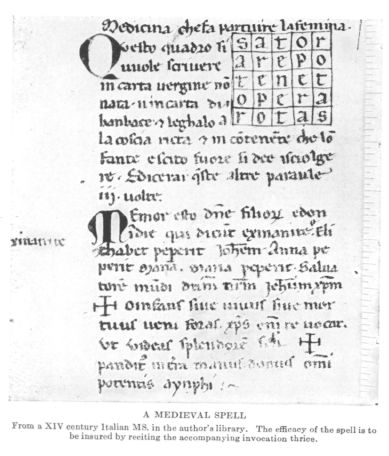 Medicina che fa partuire la femina.
Questo quadro si
vuole scrivere
in carta vergine nō
nata. u in carta di
banbace. & leghalo a
la coscia ricta & incōtenēte che lo
fante e scito fuore si dee isciolge
re. Edicerai q̄ste altre paraule
iij. uolte.
sator
arepo
tenet
opera
rotas
Memor esto dn̄e filioꝝ edon
in die qui dicūt exinanite. Eli
exinanite
sabet peperit Johēm. Anna pe
perit Mariā. Maria peperit Salua
torē mūdi dn̄m nr̄m Jehūm xp̄m
✠ O infans siue uiuus siue mor
tuus ueni foras. xp̄s te uocat.
ut uideas splendorē ✠
manus
potentis
A MEDIEVAL SPELL
From a XIV century Italian MS. in the author's library. The efficacy of the spell is to
be insured by reciting the accompanying invocation thrice.